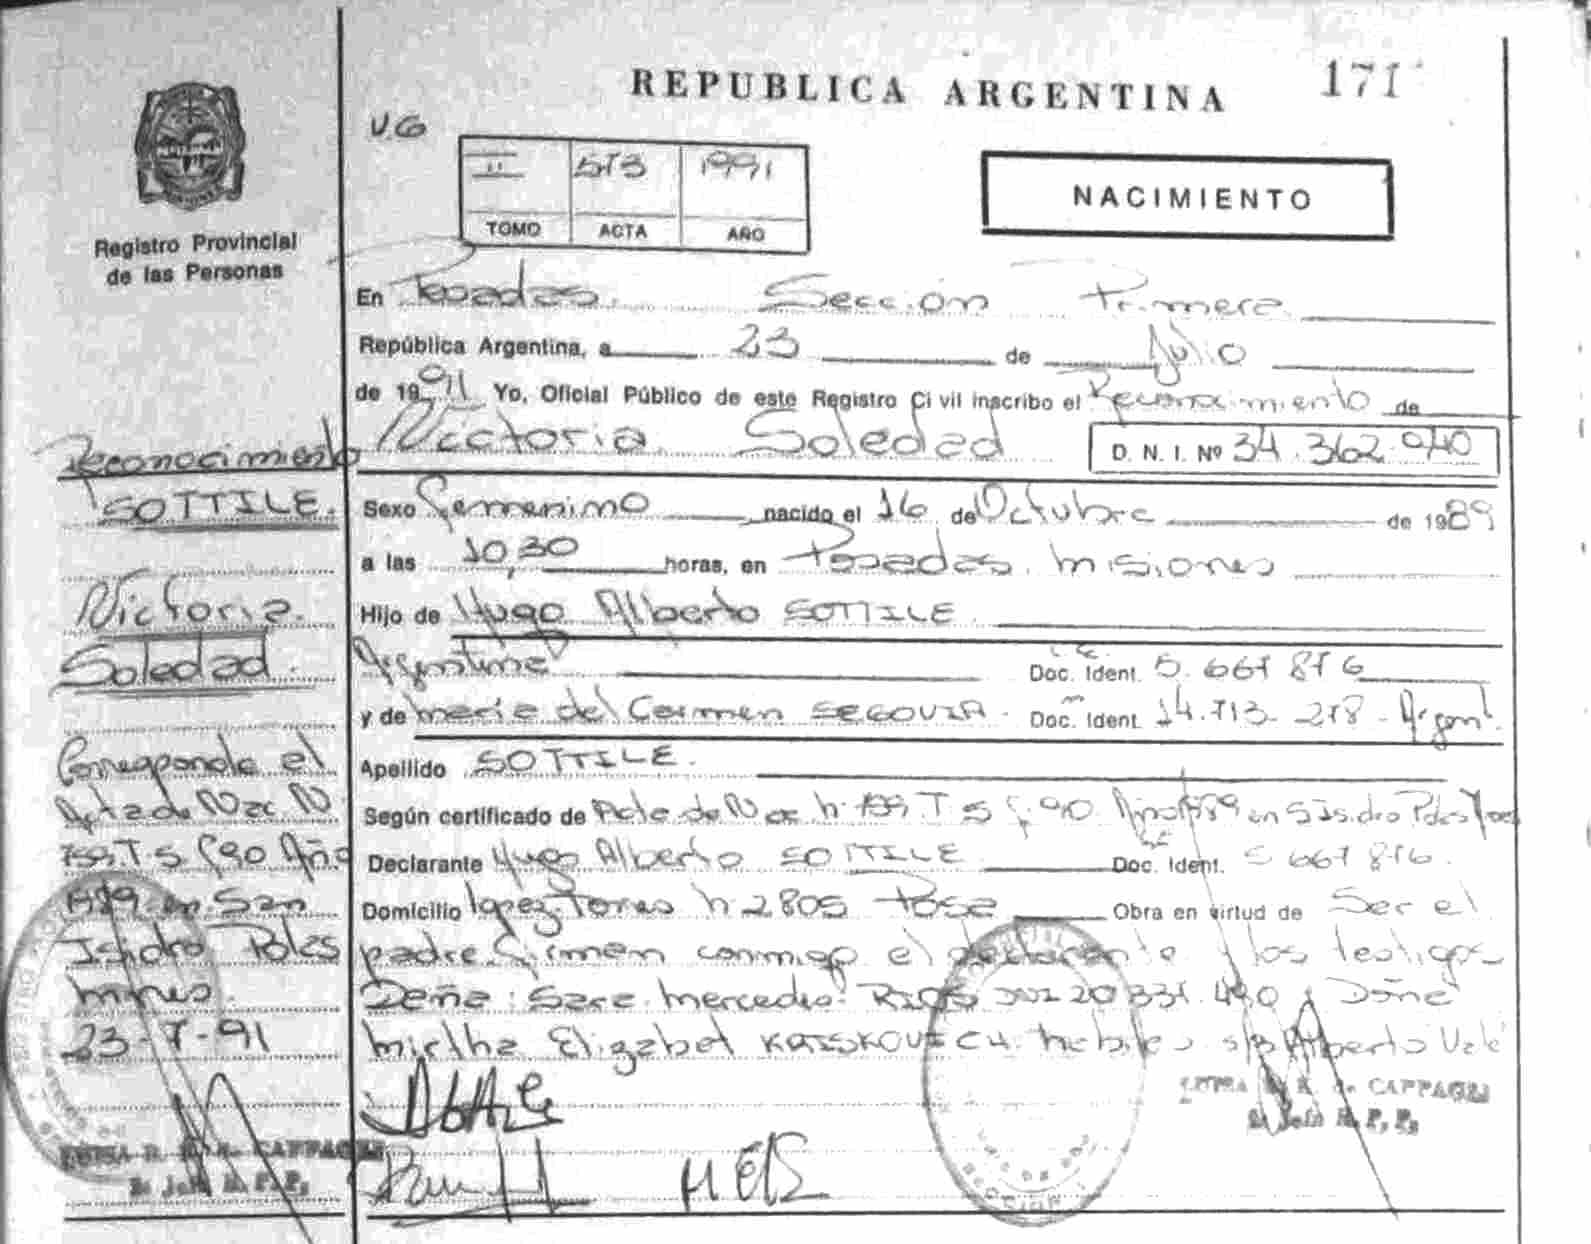 REPUBLICA ARGENTINA
171
V.G
II 573 1991
TOMO ACTA AÑO
NACIMIENTO
Registro Provincial
de las Personas
En Posadas. Sección Primera
República Argentina, a 23 de Julio
de 1991 Yo, Oficial Público de este Registro Civil inscribo el Reconocimiento de
Victoria Soledad D. N. I. Nº 34.362.940
Sexo Femenino nacido el 16 de Octubre de 1989
a las 10,30 horas, en Posadas. Misiones
Hijo de Hugo Alberto SOTTILE
Argentina Doc. Ident. 5.667 876
y de Maria del Carmen SEGOVIA - Doc. Ident. 14.713-278 - Argent.
Apellido SOTTILE.
Según certificado de Acta de Nac n. 799. T 5 F. 90 Año 1989 en S Isidro Pdas
Declarante Hugo Alberto SOTTILE Doc. Ident. 5 667 876.
Domicilio Lopez Torres n 2805 Obra en virtud de Ser el
padre. Firman conmigo el declarante y los testigos
Doña: Sara Mercedes RIOS DNI 20 331.490 y Doña
Mirtha Elizabet habiles s/p Alberto
CAPPAGLI
Reconocimiento
SOTTILE.
Victoria.
Soledad.
Corresponde el
Acta de Nac N
799. T. 5 F. 90 Año
1989 en San
Isidro Pdas
Mnes.
23-7-91
CAPPAGLI